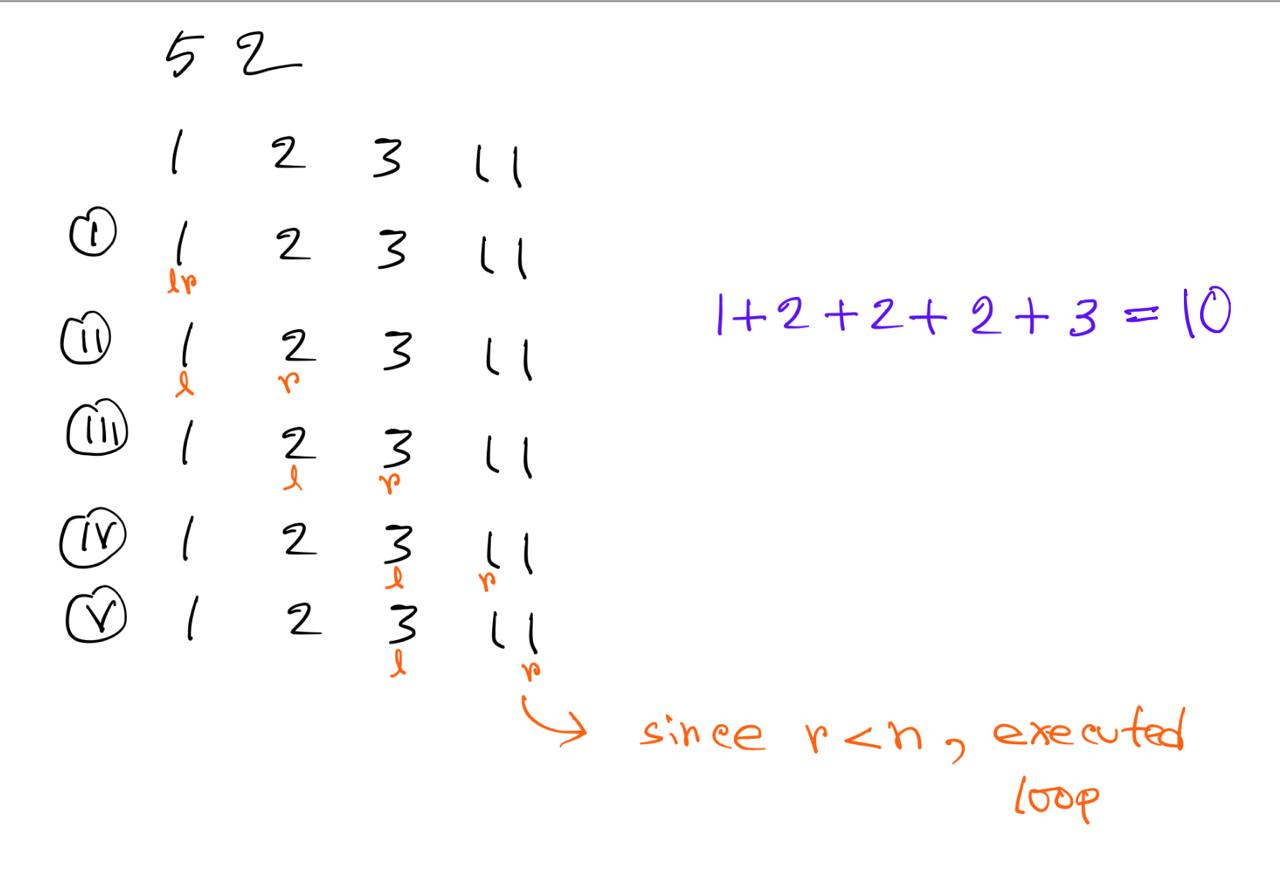 5 2
1 2 3 1 1
① 1 2 3 1 1
lr
ⅱ 1 2 3 1 1
l r
ⅲ 1 2 3 1 1
l r
ⅳ 1 2 3 1 1
l r
ⅴ 1 2 3 1 1
l r
since r < n, executed
loop
1 + 2 + 2 + 2 + 3 = 10